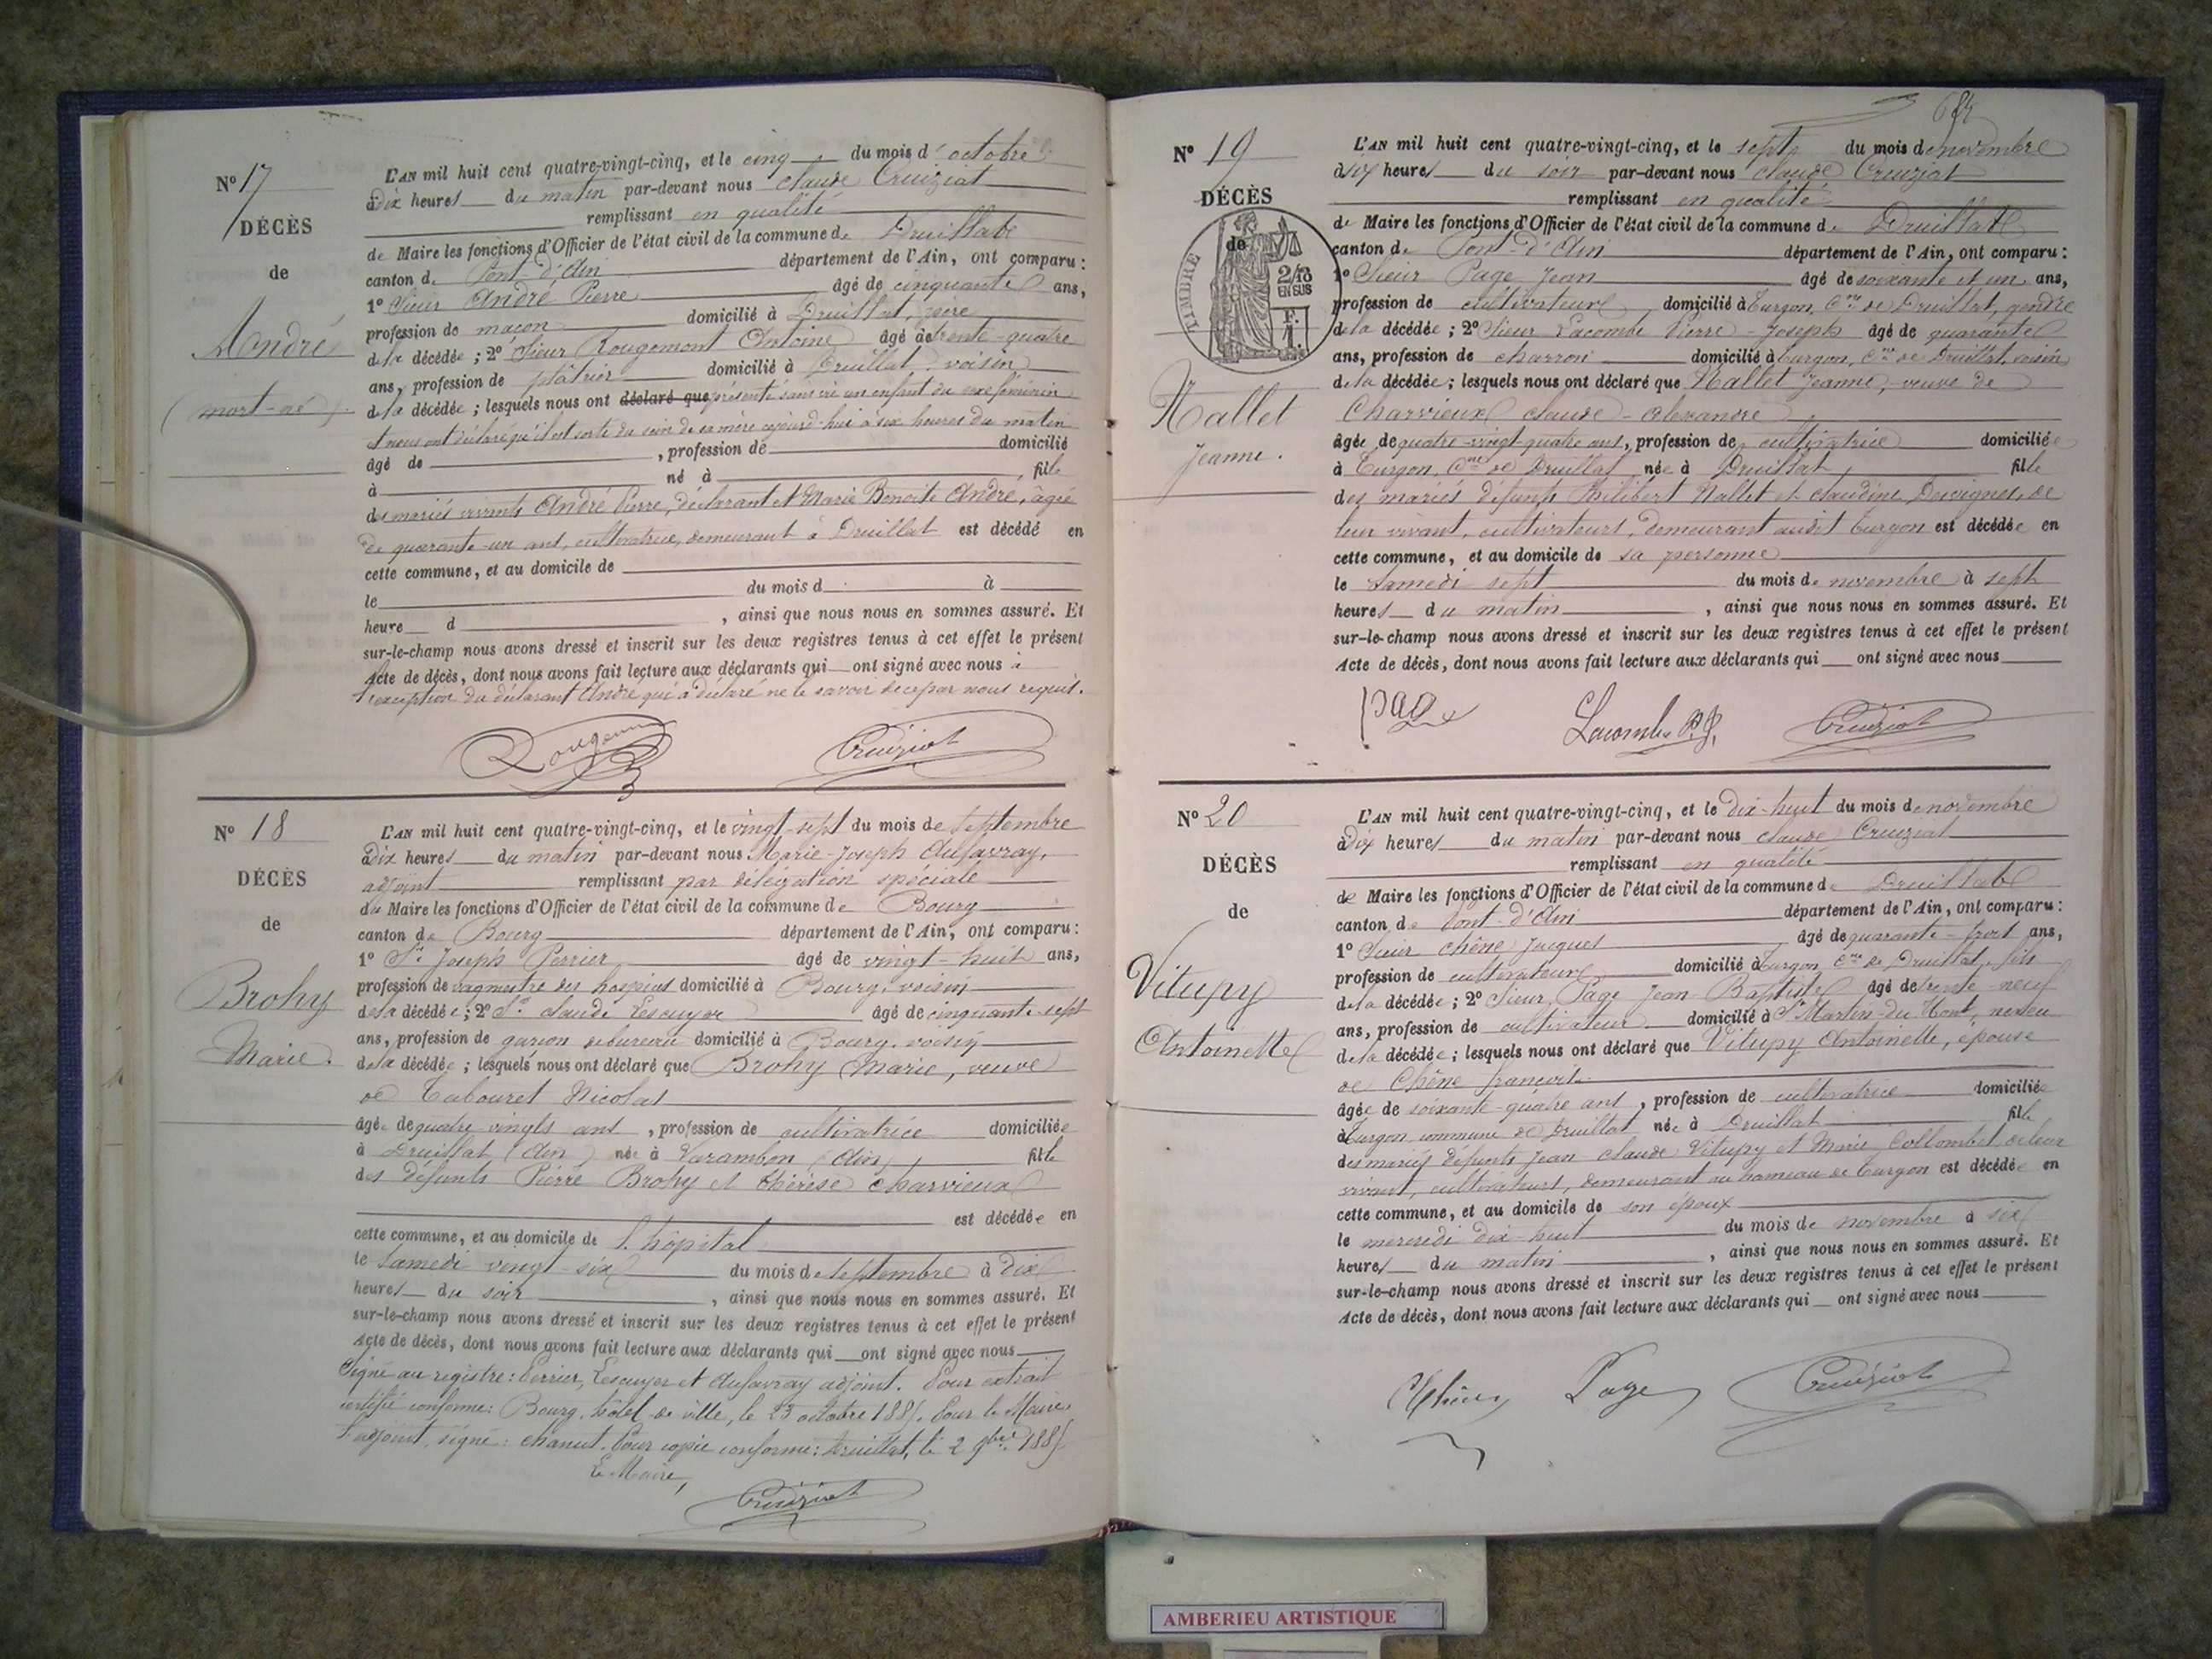 N° 17
DÉCÈS
de
André
(mort-né).
L'AN mil huit cent quatre-vingt-cinq, et le cinq du mois d'octobre
à dix heures du matin par-devant nous Claude Cruiziat
remplissant en qualité
de Maire les fonctions d'Officier de l'état civil de la commune de Druillat
canton de Pont-d'Ain département de l'Ain, ont comparu :
1° Sieur André Pierre âgé de cinquante ans,
profession de maçon domicilié à Druillat, père
de la décédée ; 2° Sieur Rougemont Antoine âgé de trente-quatre
ans, profession de plâtrier domicilié à Druillat, voisin
de la décédée ; lesquels nous ont déclaré que présenté sans vie un enfant du sexe féminin
et nous ont déclaré qu'il est sorti du sein de sa mère aujourd'hui à six heures du matin
âgé de , profession de domicilié
à né à , fille
des mariés vivants André Pierre, déclarant et Marie Benoîte André, âgée
de quarante-un ans, cultivatrice, demeurant à Druillat est décédé en
cette commune, et au domicile de
le du mois d à
heure d , ainsi que nous nous en sommes assuré. Et
sur-le-champ nous avons dressé et inscrit sur les deux registres tenus à cet effet le présent
Acte de décès, dont nous avons fait lecture aux déclarants qui ont signé avec nous à
l'exception du déclarant André qui a déclaré ne le savoir de ce par nous requis.
Rougemont Cruiziat
N° 18
DÉCÈS
de
Brohy
Marie.
L'AN mil huit cent quatre-vingt-cinq, et le vingt-sept du mois de septembre
à dix heures du matin par-devant nous Marie-Joseph Dufavray,
adjoint remplissant par délégation spéciale
du Maire les fonctions d'Officier de l'état civil de la commune de Bourg
canton de Bourg département de l'Ain, ont comparu :
1° Sr. Joseph Perrier âgé de vingt-huit ans,
profession de vagmestre des hospices domicilié à Bourg, voisin
de la décédée ; 2° Sr. Claude Lescuyer âgé de cinquante-sept
ans, profession de garçon de bureau domicilié à Bourg, voisin
de la décédée ; lesquels nous ont déclaré que Brohy Marie, veuve
de Tabouret Nicolas
âgée de quatre vingts ans , profession de cultivatrice domiciliée
à Druillat (Ain) née à Varambon (Ain) fille
des défunts Pierre Brohy et Thérèse Charvieux
est décédée en
cette commune, et au domicile de l'hôpital
le samedi vingt-six du mois de septembre à dix
heures du soir , ainsi que nous nous en sommes assuré. Et
sur-le-champ nous avons dressé et inscrit sur les deux registres tenus à cet effet le présent
Acte de décès, dont nous avons fait lecture aux déclarants qui ont signé avec nous
Signé au registre : Perrier, Lescuyer et Dufavray adjoint. Pour extrait
certifié conforme : Bourg, hôtel de ville, le 23 octobre 1885. Pour le Maire
l'adjoint, signé : Chanut. Pour copie conforme : Druillat, le 2 9bre 1885
Le Maire,
Cruiziat
684
N° 19
DÉCÈS
de
TIMBRE
2/10
EN SUS
Nallet
Jeanne.
L'AN mil huit cent quatre-vingt-cinq, et le sept du mois de novembre
à six heures du soir par-devant nous Claude Cruiziat
remplissant en qualité
de Maire les fonctions d'Officier de l'état civil de la commune de Druillat
canton de Pont-d'Ain département de l'Ain, ont comparu :
1° Sieur Page Jean âgé de soixante et un ans,
profession de cultivateur domicilié à Turgon, Cne de Druillat, gendre
de la décédée ; 2° Sieur Lacombe Pierre-Joseph âgé de quarante
ans, profession de charron domicilié à Turgon, Cne de Druillat, voisin
de la décédée ; lesquels nous ont déclaré que Nallet Jeanne, veuve de
Charvieux Claude-Alexandre
âgée de quatre-vingt-quatre ans, profession de cultivatrice domiciliée
à Turgon, Cne de Druillat née à Druillat fille
des mariés défunts Philibert Nallet et Claudine Desvignes, de
leur vivant, cultivateurs, demeurant audit Turgon est décédée en
cette commune, et au domicile de sa personne
le samedi sept du mois de novembre à sept
heures du matin , ainsi que nous nous en sommes assuré. Et
sur-le-champ nous avons dressé et inscrit sur les deux registres tenus à cet effet le présent
Acte de décès, dont nous avons fait lecture aux déclarants qui ont signé avec nous
page Lacombe P.J. Cruiziat
N° 20
DÉCÈS
de
Vitupy
Antoinette
L'AN mil huit cent quatre-vingt-cinq, et le dix-huit du mois de novembre
à dix heures du matin par-devant nous Claude Cruiziat
remplissant en qualité
de Maire les fonctions d'Officier de l'état civil de la commune de Druillat
canton de Pont-d'Ain département de l'Ain, ont comparu :
1° Sieur Chêne Jacques âgé de quarante-trois ans,
profession de cultivateur domicilié à Turgon, Cne de Druillat, fils
de la décédée ; 2° Sieur Page Jean-Baptiste âgé de trente-neuf
ans, profession de cultivateur domicilié à St Martin-du-Mont, neveu
de la décédée ; lesquels nous ont déclaré que Vitupy Antoinette, épouse
de Chêne François
âgée de soixante-quatre ans , profession de cultivatrice domiciliée
à Turgon commune de Druillat née à Druillat fille
des mariés défunts Jean-Claude Vitupy et Marie Collombet de leur
vivant, cultivateurs, demeurant au hameau de Turgon est décédée en
cette commune, et au domicile de son époux
le mercredi dix-huit du mois de novembre à six
heures du matin , ainsi que nous nous en sommes assuré. Et
sur-le-champ nous avons dressé et inscrit sur les deux registres tenus à cet effet le présent
Acte de décès, dont nous avons fait lecture aux déclarants qui ont signé avec nous
Chêne Page Cruiziat
AMBERIEU ARTISTIQUE